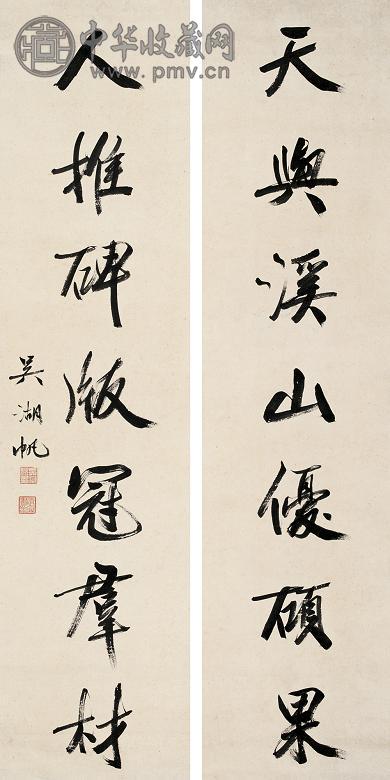 中华收藏网
www.pmv.cn
天與溪山優碩果
人推碑版冠羣材
吳湖帆